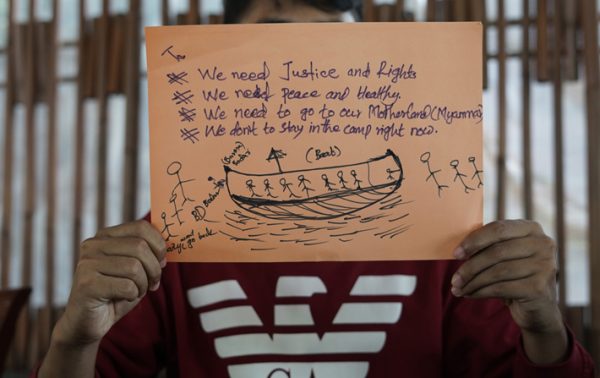 We need Justice and Rights
We need peace and Healthy.
We need to go to our MotherLand (Myanmar)
We don't to stay in the camp right now.
(Boat)
BD
go back
GA